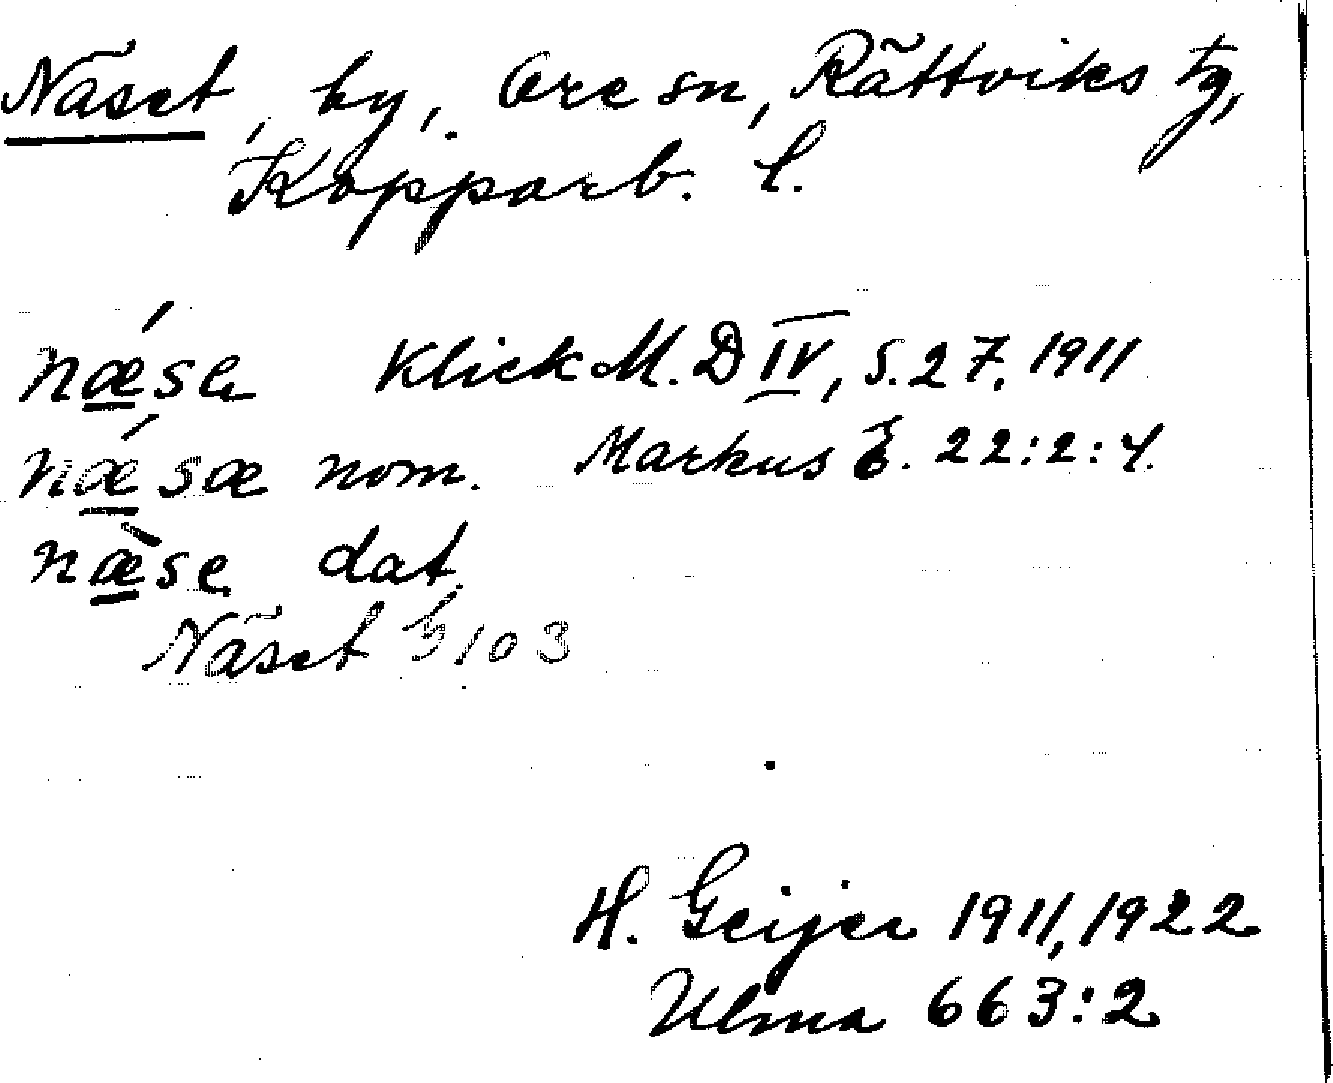 Näset, by, Ore sn, Rättviks tg,
Kopparb. l.
nǽ̲se Klick M. D IV, s. 27, 1911
nǽ̲sæ nom. Markus E. 22:2:4.
næ̲̀se dat.
Näset 5/103
H. Geijer 1911, 1922
Ulma 663:2